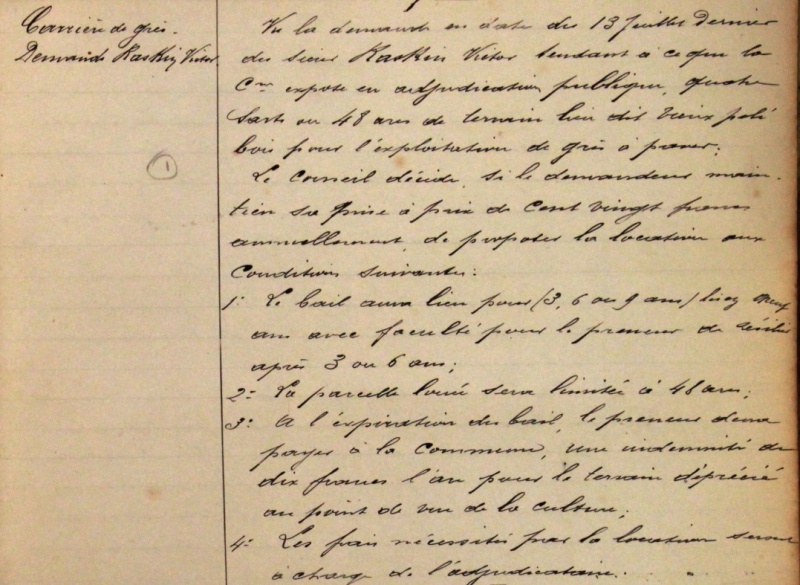 Carrière de grès.
Demande Raskin Victor
1
Vu la demande en date du 13 Juillet dernier
du sieur Raskin Victor tendant à ce que la
Cne expose en adjudication publique, quatre
sarts ou 48 ares de terrain lieu dit vieux
bois pour l'exploitation de grès à paver;
Le Conseil décide, si le demandeur main-
tien sa prise à prix de cent vingt francs
annuellement, de proposer la location aux
conditions suivantes:
1: Le bail aura lieu pour (3, 6 ou 9 ans) lisez neuf
ans avec faculté pour le preneur de résilier
après 3 ou 6 ans;
2: La parcelle louée sera limitée à 48 ares;
3: A l'expiration du bail, le preneur devra
payer à la commune, une indemnité de
dix francs l'are pour le terrain déprécié
au point de vue de la culture;
4: Les frais nécessités par la location seront
à charge de l'adjudicataire.